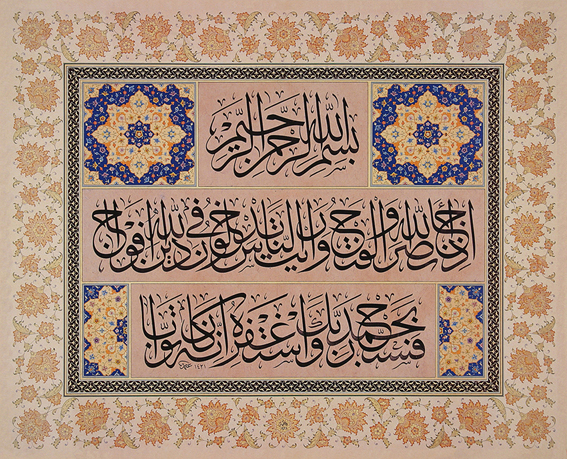 بسم الله الرحمن الرحيم
اذا جاء نصر الله والفتح ورأيت الناس يدخلون في دين الله أفواجا
فسبح بحمد ربك واستغفره إنه كان توابا
١٤٢١